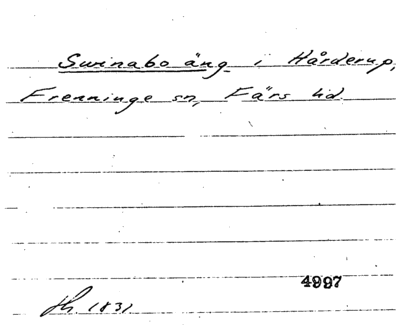 Swinabo äng i Hårderup,
Frenninge sn, Färs hd.
4997
1831